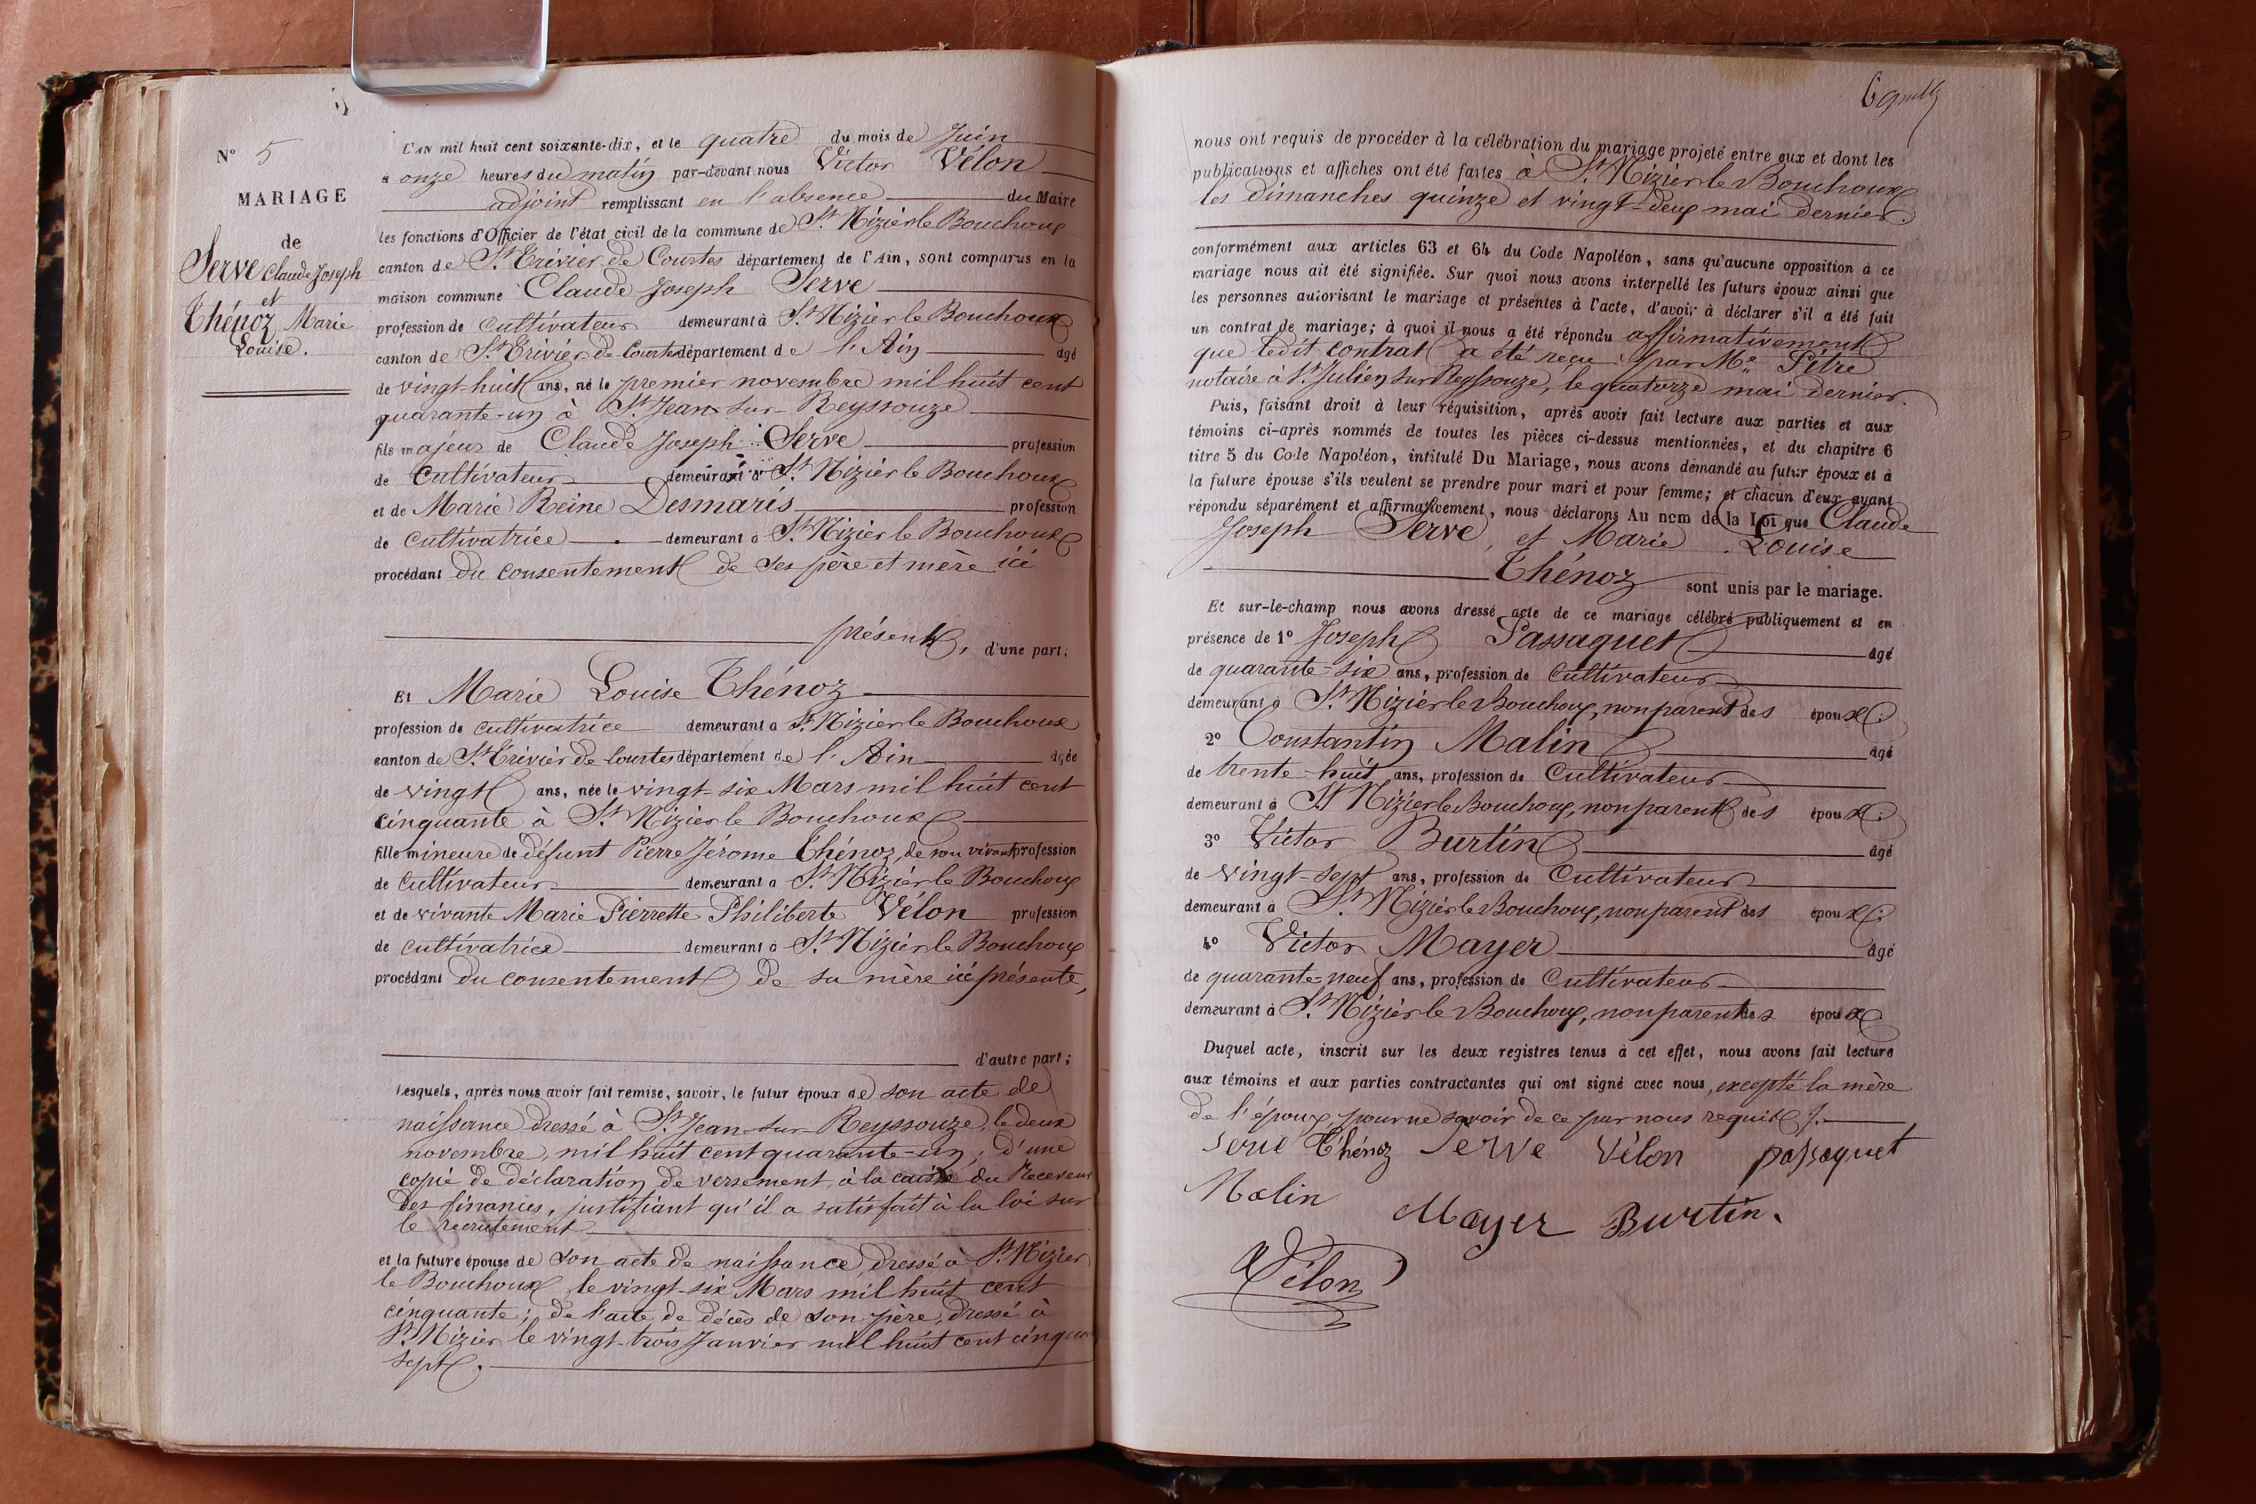 N° 5
MARIAGE
de
Serve Claude Joseph
et
Thénoz Marie
Louise.
L'AN mil huit cent soixante-dix, et le quatre du mois de Juin
à onze heures du matin par-devant nous Victor Vélon
adjoint remplissant en l'absence du Maire
les fonctions d'Officier de l'état civil de la commune de St Nizier le Bouchoux
canton de St Trivier de Courtes département de l'Ain, sont comparus en la
maison commune Claude Joseph Serve
profession de cultivateur demeurant à St Nizier le Bouchoux
canton de St Trivier de Courtes département de l'Ain âgé
de vingt-huit ans, né le premier novembre mil huit cent
quarante-un à St Jean-sur-Reyssouze
fils majeur de Claude Joseph Serve profession
de cultivateur demeurant à St Nizier le Bouchoux
et de Marie Reine Desmaris profession
de cultivatrice demeurant à St Nizier le Bouchoux
procédant du consentement de ses père et mère ici
présents, d'une part;
Et Marie Louise Thénoz
profession de cultivatrice demeurant à St Nizier le Bouchoux
canton de St Trivier de Courtes département de l'Ain âgée
de vingt ans, née le vingt-six Mars mil huit cent
cinquante à St Nizier le Bouchoux
fille mineure de défunt Pierre Jérome Thénoz, de son vivant profession
de cultivateur demeurant à St Nizier le Bouchoux
et de vivante Marie Pierrette Philiberte Vélon profession
de cultivatrice demeurant à St Nizier le Bouchoux
procédant du consentement de sa mère ici présente,
d'autre part;
Lesquels, après nous avoir fait remise, savoir, le futur époux de son acte de
naissance dressé à St Jean-sur-Reyssouze, le deux
novembre, mil huit cent quarante-un; d'une
copie de déclaration de versement à la caisse du Receveur
des finances, justifiant qu'il a satisfait à la loi sur
le recrutement
et la future épouse de son acte de naissance, dressé à St Nizier
le Bouchoux le vingt-six Mars mil huit cent
cinquante; de l'acte de décès de son père, dressé à
St Nizier le vingt-trois Janvier mil huit cent cinquante
sept.
nous ont requis de procéder à la célébration du mariage projeté entre eux et dont les
publications et affiches ont été faites à St Nizier le Bouchoux
les dimanches quinze et vingt-deux mai dernier.
conformément aux articles 63 et 64 du Code Napoléon, sans qu'aucune opposition à ce
mariage nous ait été signifiée. Sur quoi nous avons interpellé les futurs époux ainsi que
les personnes autorisant le mariage et présentes à l'acte, d'avoir à déclarer s'il a été fait
un contrat de mariage; à quoi il nous a été répondu affirmativement
que ledit contrat a été reçu par Me Pétre
notaire à St Julien sur Reyssouze, le quatorze mai dernier.
Puis, faisant droit à leur réquisition, après avoir fait lecture aux parties et aux
témoins ci-après nommés de toutes les pièces ci-dessus mentionnées, et du chapitre 6
titre 5 du Code Napoléon, intitulé Du Mariage, nous avons demandé au futur époux et à
la future épouse s'ils veulent se prendre pour mari et pour femme; et chacun d'eux ayant
répondu séparément et affirmativement, nous déclarons Au nom de la Loi que Claude
Joseph Serve, et Marie Louise
Thénoz sont unis par le mariage.
Et sur-le-champ nous avons dressé acte de ce mariage célébré publiquement et en
présence de 1° Joseph Passaquet âgé
de quarante-six ans, profession de Cultivateur
demeurant à St Nizier le Bouchoux, non parent des époux.
2° Constantin Malin âgé
de trente-huit ans, profession de Cultivateur
demeurant à St Nizier le Bouchoux, non parent des époux.
3° Victor Burtin âgé
de vingt-sept ans, profession de Cultivateur
demeurant à St Nizier le Bouchoux, non parent des époux.
4° Victor Mayer âgé
de quarante-neuf ans, profession de Cultivateur
demeurant à St Nizier le Bouchoux, non parent des époux
Duquel acte, inscrit sur les deux registres tenus à cet effet, nous avons fait lecture
aux témoins et aux parties contractantes qui ont signé avec nous, excepté la mère
de l'époux pour ne savoir de ce par nous requis.
Serve Thénoz Serve Vélon passaquet
Malin Mayer Burtin.
Vélon